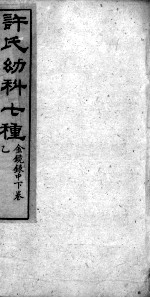 許氏幼科七種
金鏡錄中下卷
乙